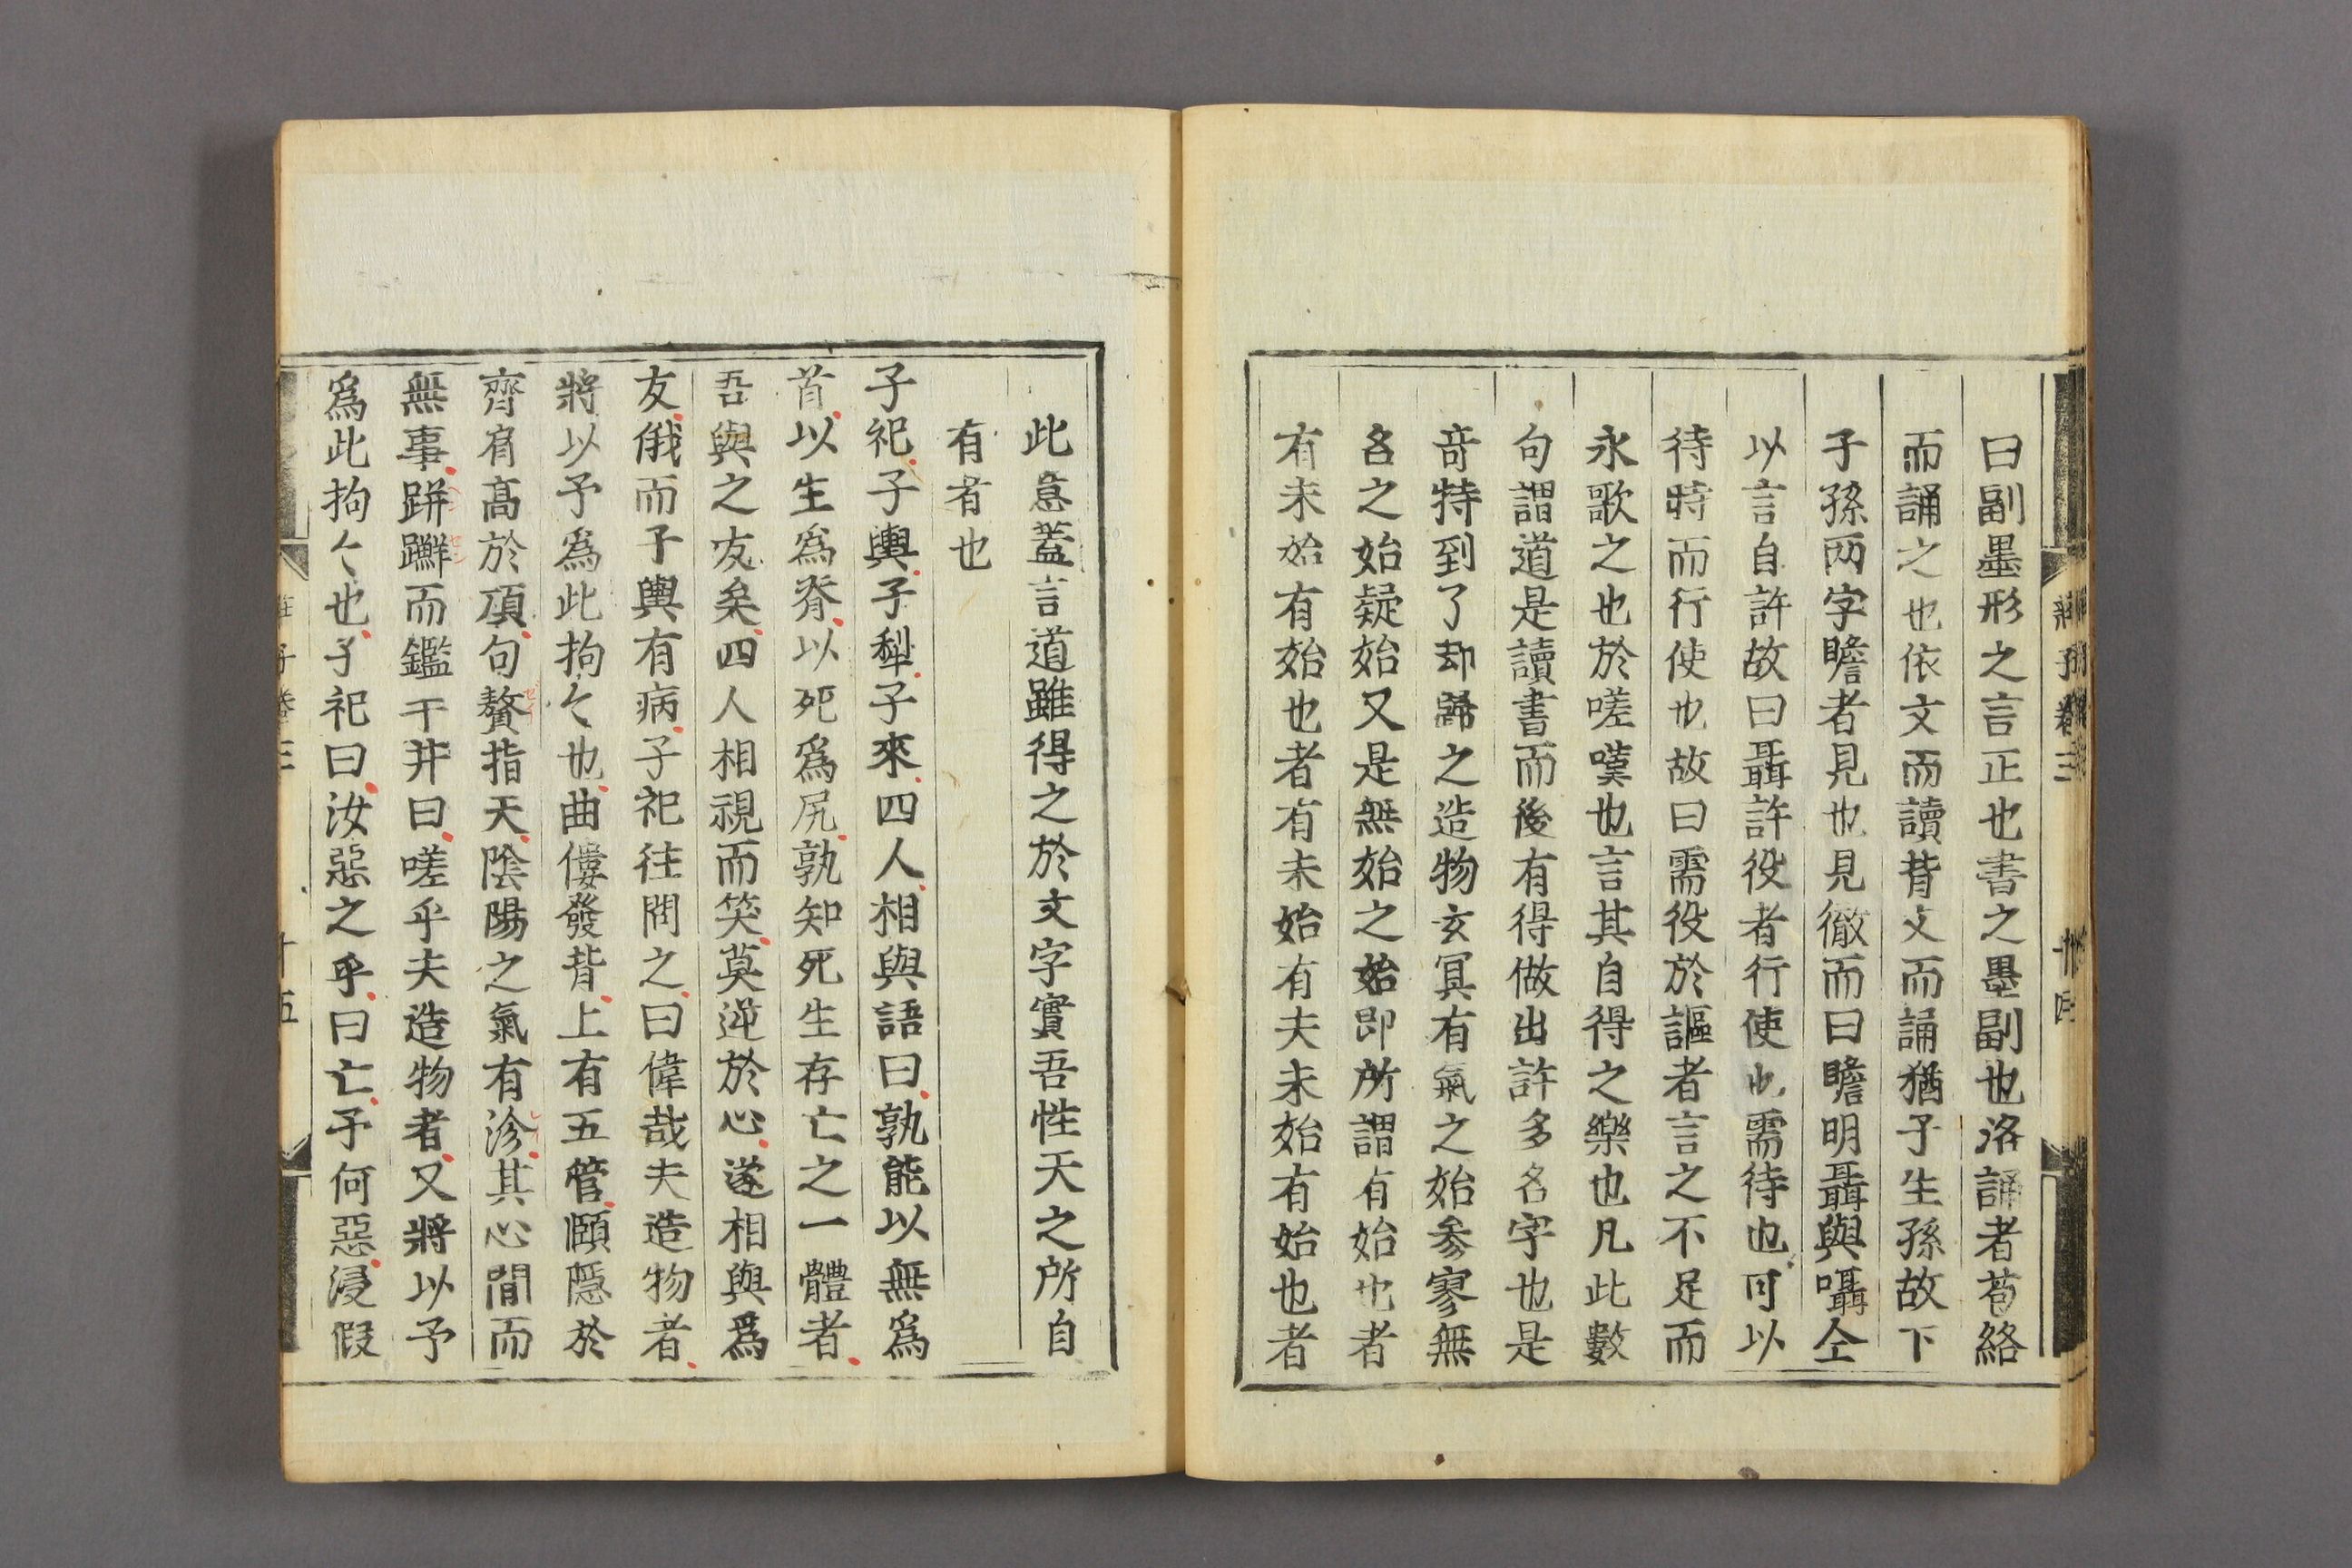 莊子卷三
十四
曰副墨形之言正也書之墨副也洛誦者苞絡
而誦之也依文而讀背文而誦猶子生孫故下
子孫两字瞻者見也見徹而曰瞻明聶與囁仝
以言自許故曰聶許役者行使也需待也可以
待時而行使也故曰需役於謳者言之不足而
永歌之也於嗟嘆也言其自得之樂也凡此數
句謂道是讀書而後有得做出許多名字也是
竒特到了却歸之造物玄冥有氣之始參寥無
名之始疑始又是無始之始即所謂有始也者
有未始有始也者有未始有夫未始有始也者
此意蓋言道雖得之於文字實吾性天之所自
有者也
子祀子輿子犁子來四人相與語曰孰能以無爲
首以生爲脊以死爲尻孰知死生存亡之一體者
吾與之友矣四人相視而笑莫逆於心遂相與爲
友俄而子輿有病子祀往問之曰偉哉夫造物者
將以予爲此拘〻也曲僂發背上有五管頤隱於
齊肩高於項句贅指天陰陽之氣有沴其心閒而
無事跰𨇤而鑑于井曰嗟乎夫造物者又將以予
爲此拘〻也子祀曰汝惡之乎曰亡予何惡浸假
莊子卷三
十五